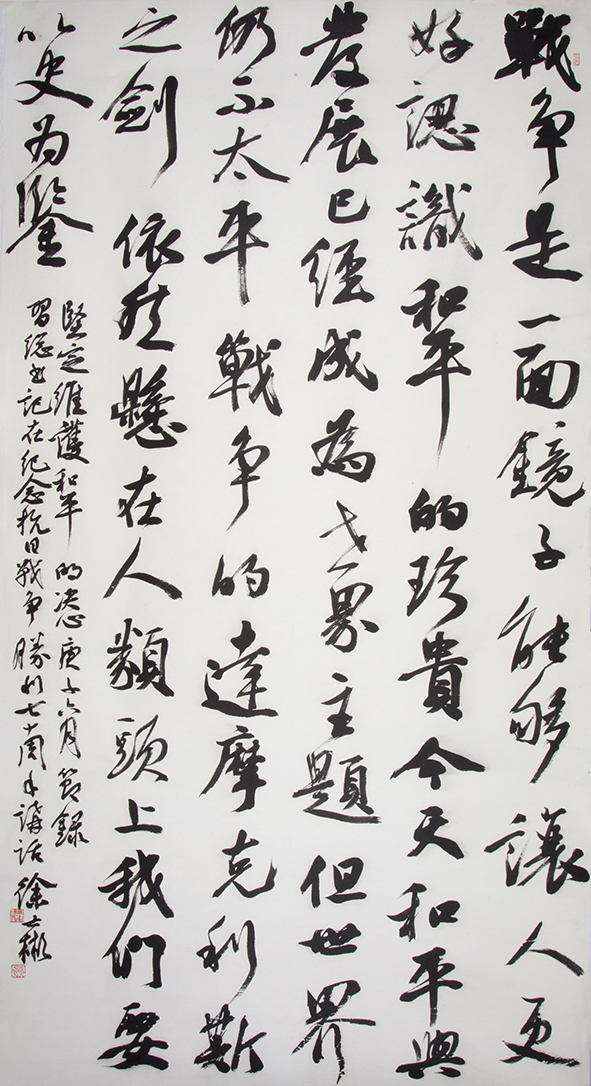 戰争是一面鏡子能够讓人更
好認識和平的珍貴今天和平與
發展已經成為世界主題但世界
仍不太平戰争的達摩克利斯
之劍依然懸在人類頭上我們要
以史为鑒
堅定維護和平的决心庚子六月節録
習總书記在紀念抗日戰争勝利七十周年講話徐士彬